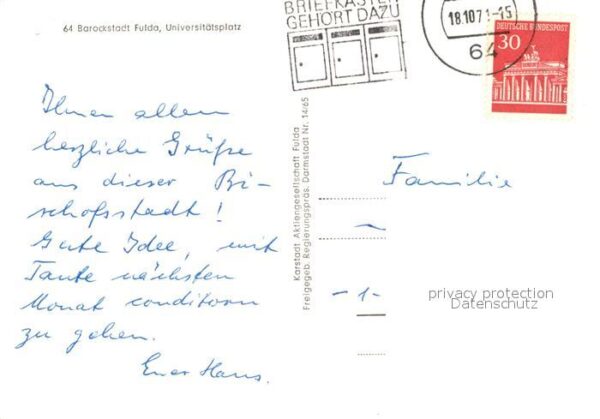 64 Barockstadt Fulda, Universitätsplatz
BRIEFKASTEN
GEHÖRT DAZU
18.10.71-15
64
DEUTSCHE BUNDESPOST
30
Ihnen allen
herzliche Grüße
aus dieser Bi-
schofsstadt!
Gute Idee, mit
Tante nächsten
Monat conditorn
zu gehen.
Euer Hans.
Karstadt Aktiengesellschaft Fulda
Freigegeb. Regierungspräs. Darmstadt Nr. 14/65
Familie
-1-
privacy protection
Datenschutz